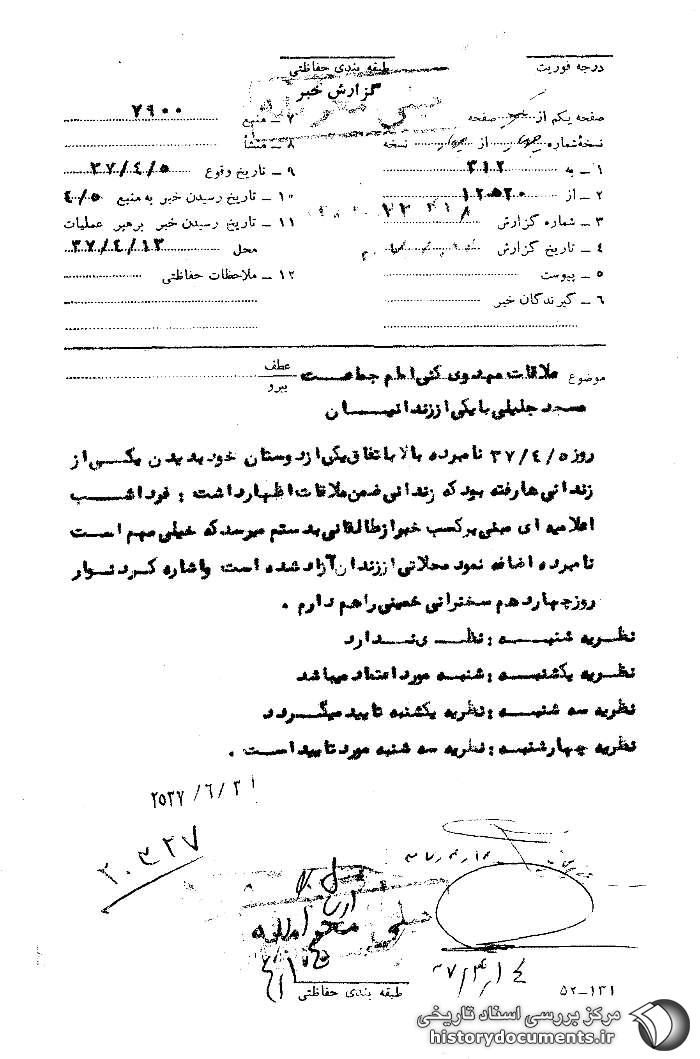 درجه فوریت
طبقه بندی حفاظتی
گزارش خبر
خیلی محرمانه
صفحه یکم از یک صفحه
نسخهٔ شماره از نسخه
۱ ـ به ۳۱۲
۲ ـ از ۱۲ﻫ۲۰
۳ ـ شماره گزارش
۴ ـ تاریخ گزارش
۵ ـ پیوست
۶ ـ گیرندگان خبر
۷ ـ منبع ۷۶۰۰
۸ ـ منشأ
۹ ـ تاریخ وقوع ۳۷/۴/۵
۱۰ ـ تاریخ رسیدن خبر به منبع ۴/۵
۱۱ ـ تاریخ رسیدن خبر برهبر عملیات
محل ۳۷/۴/۱۳
۱۲ ـ ملاحظات حفاظتی
موضوع ملاقات مهدوی کنی امام جماعت
مسجد جلیلی با یکی از زندانیان
عطف
پیرو
روز ۳۷/۴/۵ نامبرده بالا باتفاق یکی از دوستان خود بدیدن یکی از
زندانی ها رفته بود که زندانی ضمن ملاقات اظهار داشت : فردا شب
اعلامیه ای مبنی برکسب خبر از طالقانی بدستم میرسد که خیلی مهم است
نامبرده اضافه نمود محلاتی از زندان آزاد شده است و اشاره کرد نوار
روز چهاردهم سخنرانی خمینی را هم دارم .
نظریه شنبه : نظری ندارد
نظریه یکشنبه : شنبه مورد اعتماد میباشد
نظریه سه شنبه : نظریه یکشنبه تایید میگردد
نظریه چهارشنبه : نظریه سه شنبه مورد تایید است .
۲۵۳۷/۶/۲۱
۲۰۳۲۷
خیلی محرمانه
طبقه بندی حفاظتی
۵۲-۱۳۱
مرکز بررسی اسناد تاریخی
historydocuments.ir